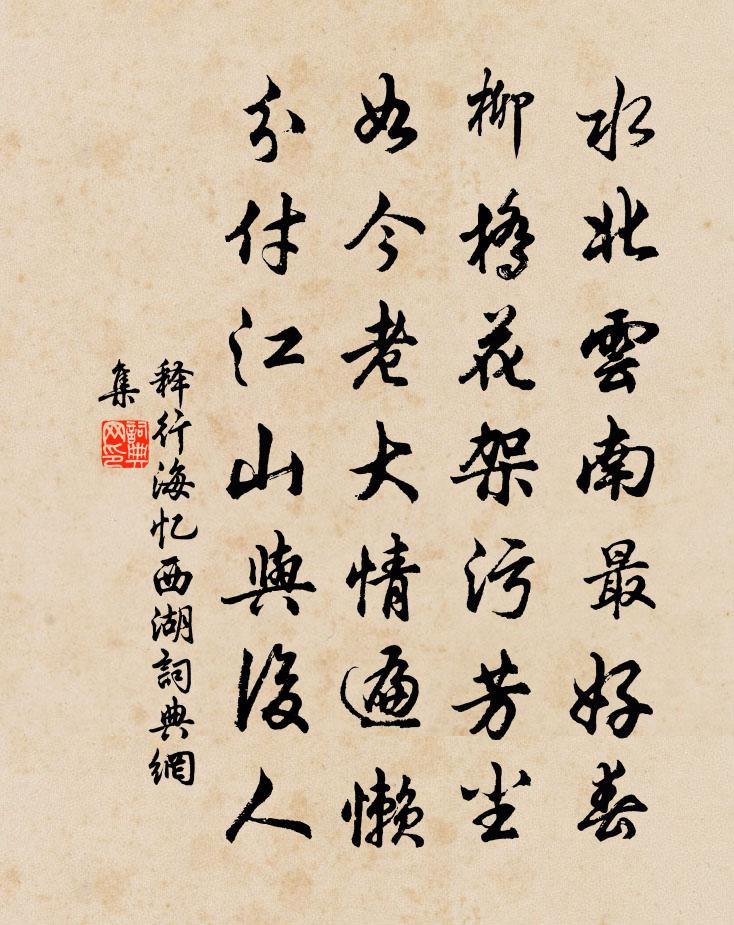 水北雲南最好春
柳橋花架污芳尘
如今老大情遍懒
分付江山與後人
释行海忆西湖詞典網
集
詞典網印